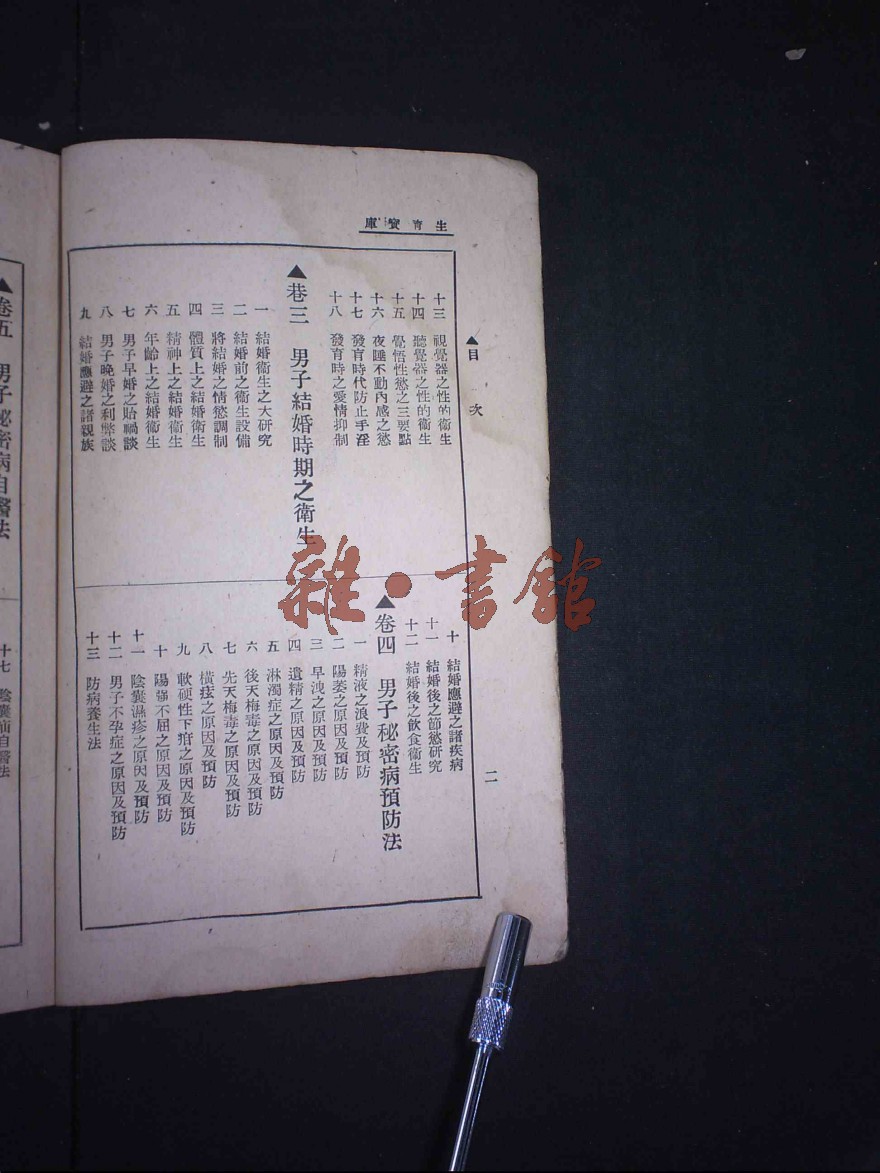 生育寶庫
▲目次
二
十三 視覺器之性的衛生
十四 聽覺器之性的衛生
十五 覺悟性慾之三要點
十六 夜睡不動內感之慾
十七 發育時代防止手淫
十八 發育時之愛情抑制
▲卷三 男子結婚時期之衛生
一 結婚衛生之大研究
二 結婚前之衛生設備
三 將結婚之情慾調制
四 體質上之結婚衛生
五 精神上之結婚衛生
六 年齡上之結婚衛生
七 男子早婚之貽禍談
八 男子晚婚之利弊談
九 結婚應避之諸親族
十 結婚應避之諸疾病
十一 結婚後之節慾研究
十二 結婚後之飲食衛生
▲卷四 男子秘密病預防法
一 精液之浪費及預防
二 陽萎之原因及預防
三 早洩之原因及預防
四 遺精之原因及預防
五 淋濁症之原因及預防
六 後天梅毒之原因及預防
七 先天梅毒之原因及預防
八 橫痃之原因及預防
九 軟硬性下疳之原因及預防
十 陽強不屈之原因及預防
十一 陰囊濕疹之原因及預防
十二 男子不孕症之原因及預防
十三 防病養生法
▲卷五 男子秘密病自醫法
十七 陰囊前自醫法
雜·書館